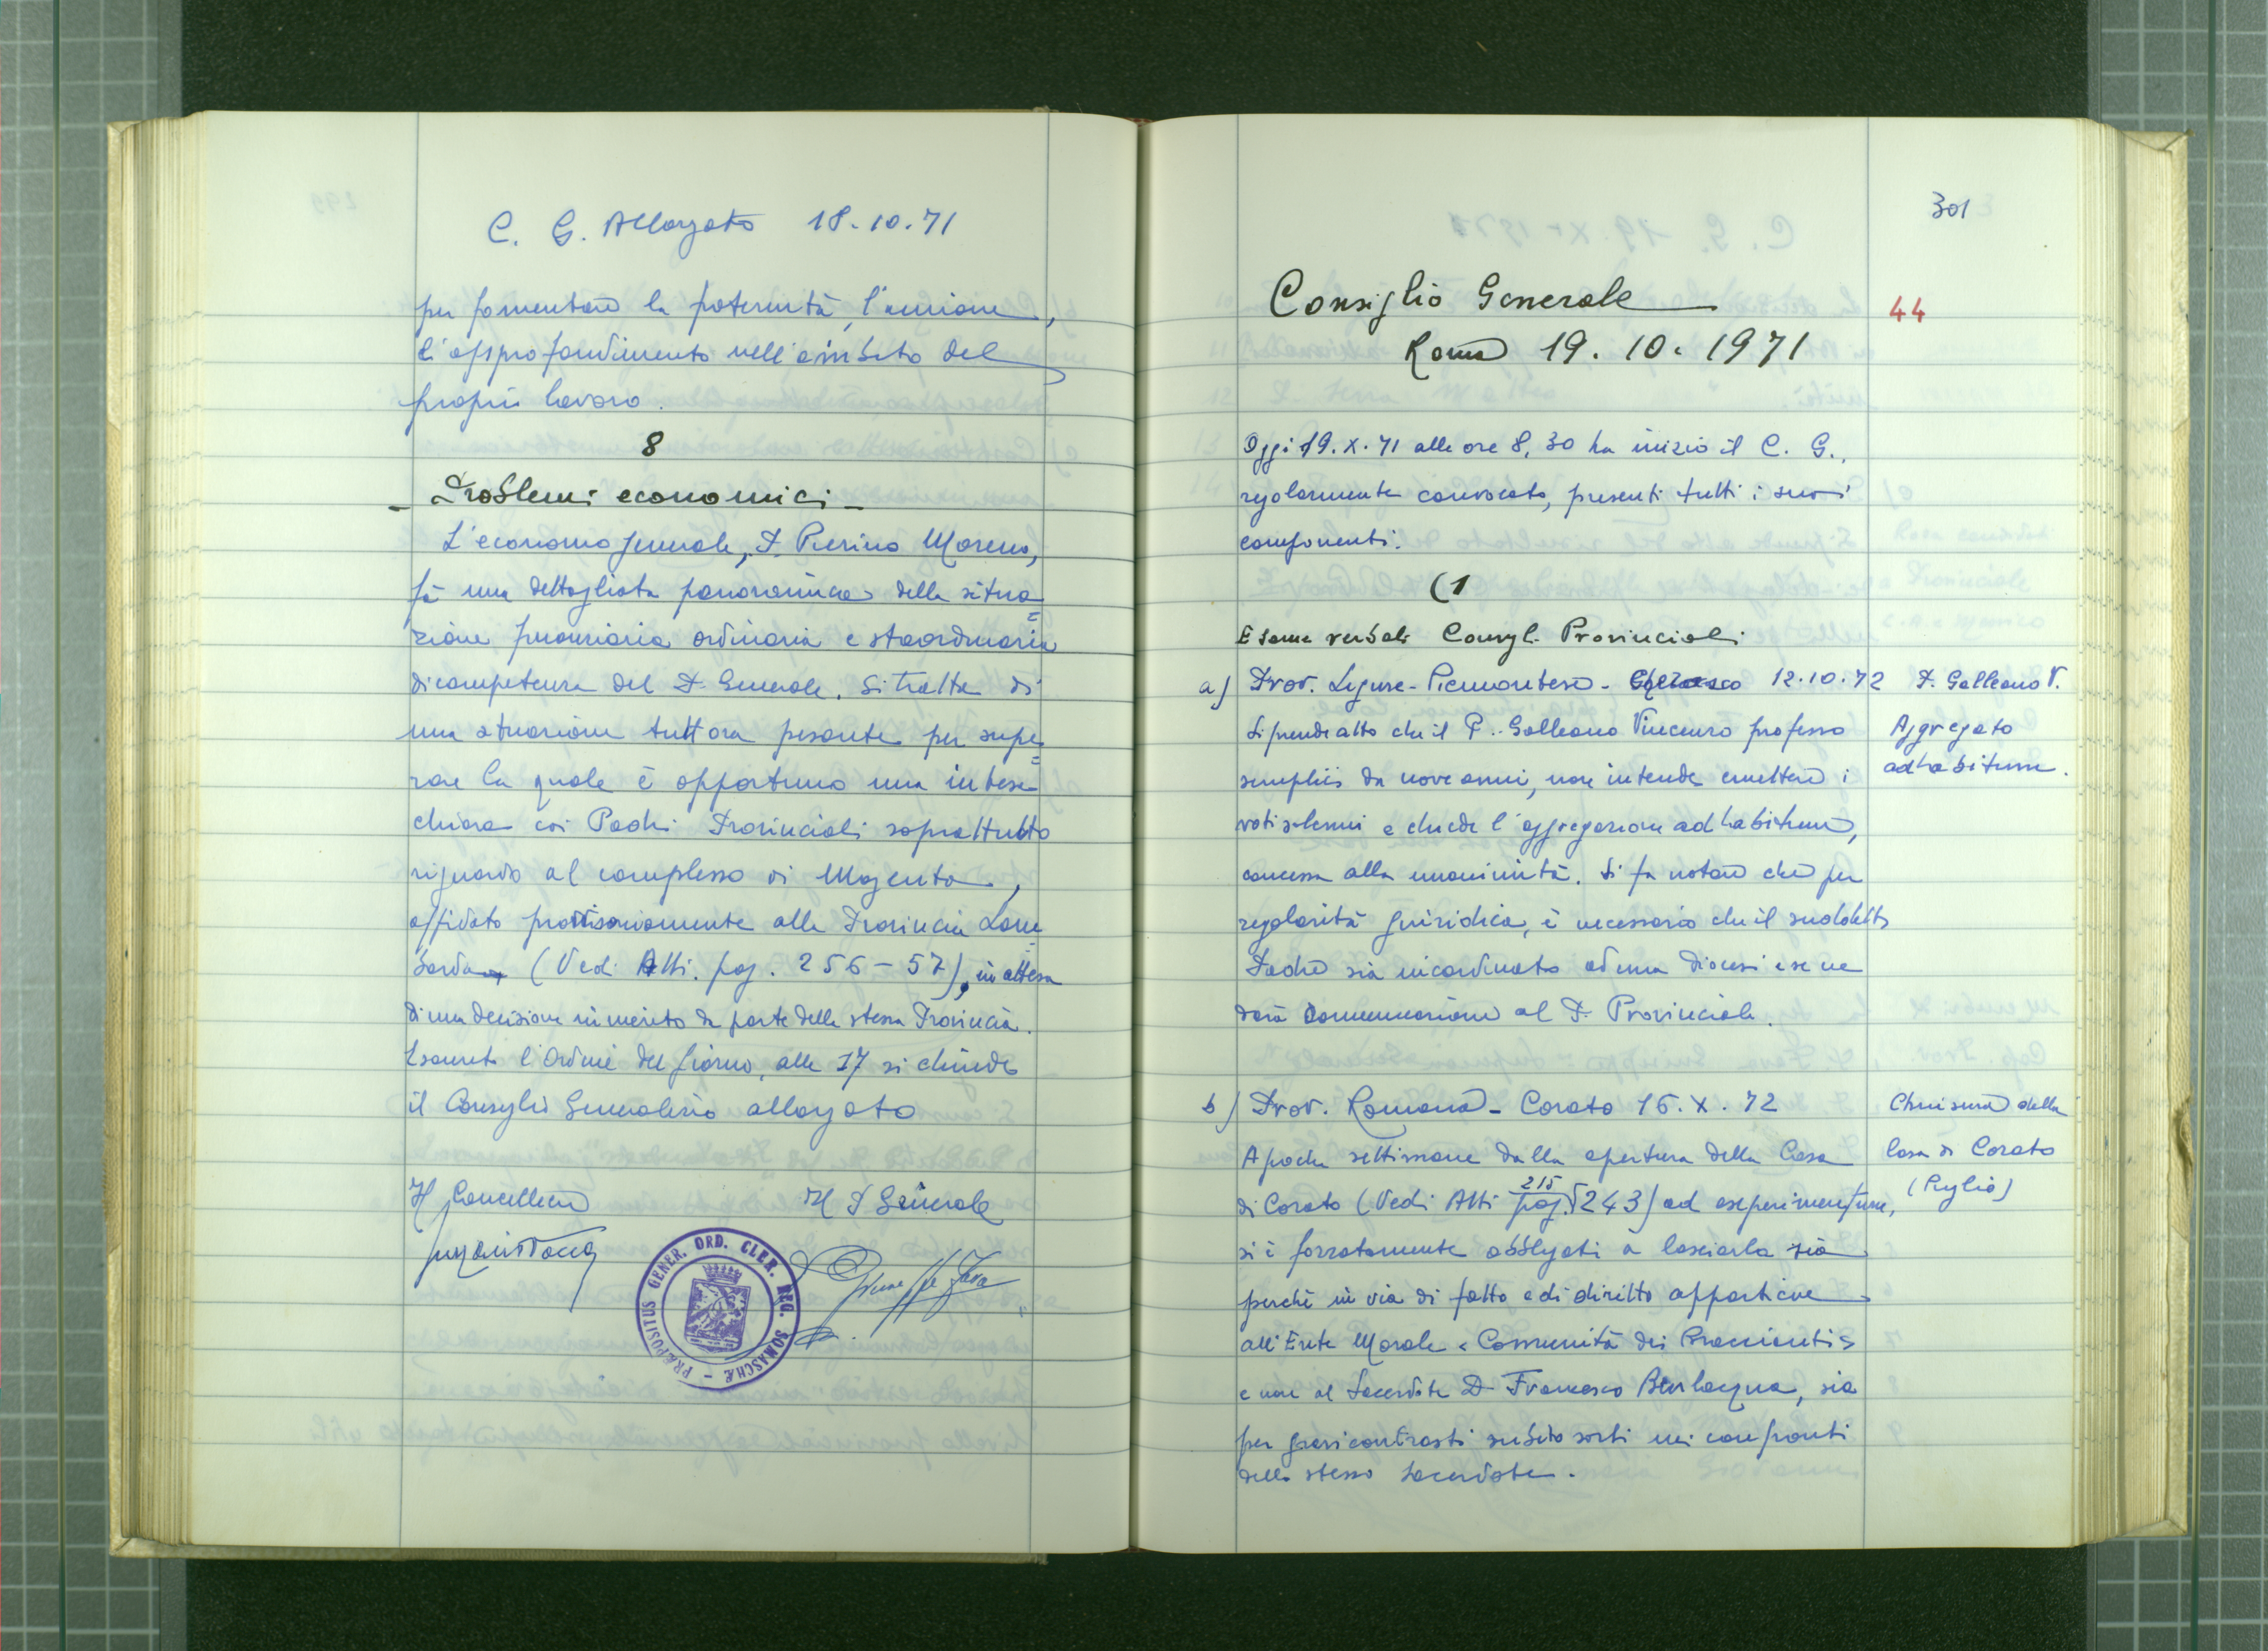 C. G. Allargato 18.10.71
per fomentare la fraternità, l'unione,
l'approfondimento nell'ambito del
proprio lavoro.
8
- Problemi economici -
L'economo generale, P. Pierino Moreno,
fà una dettagliata panoramica della situa=
zione finanziaria ordinaria e straordinaria
di competenza del P. Generale. Si tratta di
una situazione tutt'ora pesante per supe=
rare la quale è opportuno una intesa
chiara coi Padri Provinciali soprattutto
riguardo al complesso di Magenta,
affidato provvisoriamente alla Provincia Lom=
barda (Vedi Atti. pag. 256-57), in attesa
di una decisione in merito da parte della stessa Provincia.
Esaurito l'Ordine del Giorno, alle 17 si chiude
il Consiglio Generalizio allargato
Il Cancelliere
Il P. Generale
Giuseppe Fava
PRÆPOSITUS GENER. ORD. CLER. REG. SOMASCHÆ -
301
Consiglio Generale
44
Roma 19.10.1971
Oggi 19.X.71 alle ore 8,30 ha inizio il C. G.,
regolarmente convocato, presenti tutti i suoi
componenti.
(1
Esame verbali Consigl. Provinciali
a) Prov. Ligure-Piemontese - Cherasco 12.10.72
P. Galleano V.
Aggregato
ad habitum.
Si prende atto che il P. Galleano Vincenzo professo
semplice da nove anni, non intende emettere i
voti solenni e chiede l'aggregazione ad habitum,
concessa alla unanimità. Si fa notare che per
regolarità giuridica, è necessario che il suddetto
Padre sia incardinato ad una Diocesi e se ne
darà comunicazione al P. Provinciale.
b) Prov. Romana - Corato 15.X.72
Chiusura della
Casa di Corato
(Puglia)
A poche settimane dalla apertura della Casa
di Corato (Vedi Atti pag. 215 243) ad esperimentum,
si è forzatamente obbligati a lasciarla sia
perchè in via di fatto e di diritto appartiene
all'Ente Morale «Comunità dei Braccianti»
e non al Sacerdote D. Francesco Bevilacqua, sia
per gravi contrasti subito sorti nei confronti
dello stesso Sacerdote.